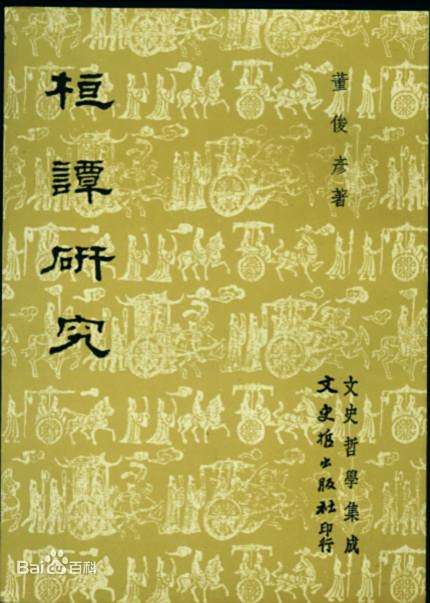 桓譚研究
董俊彥著
文史哲學集成
文史哲出版社印行
Bai百科